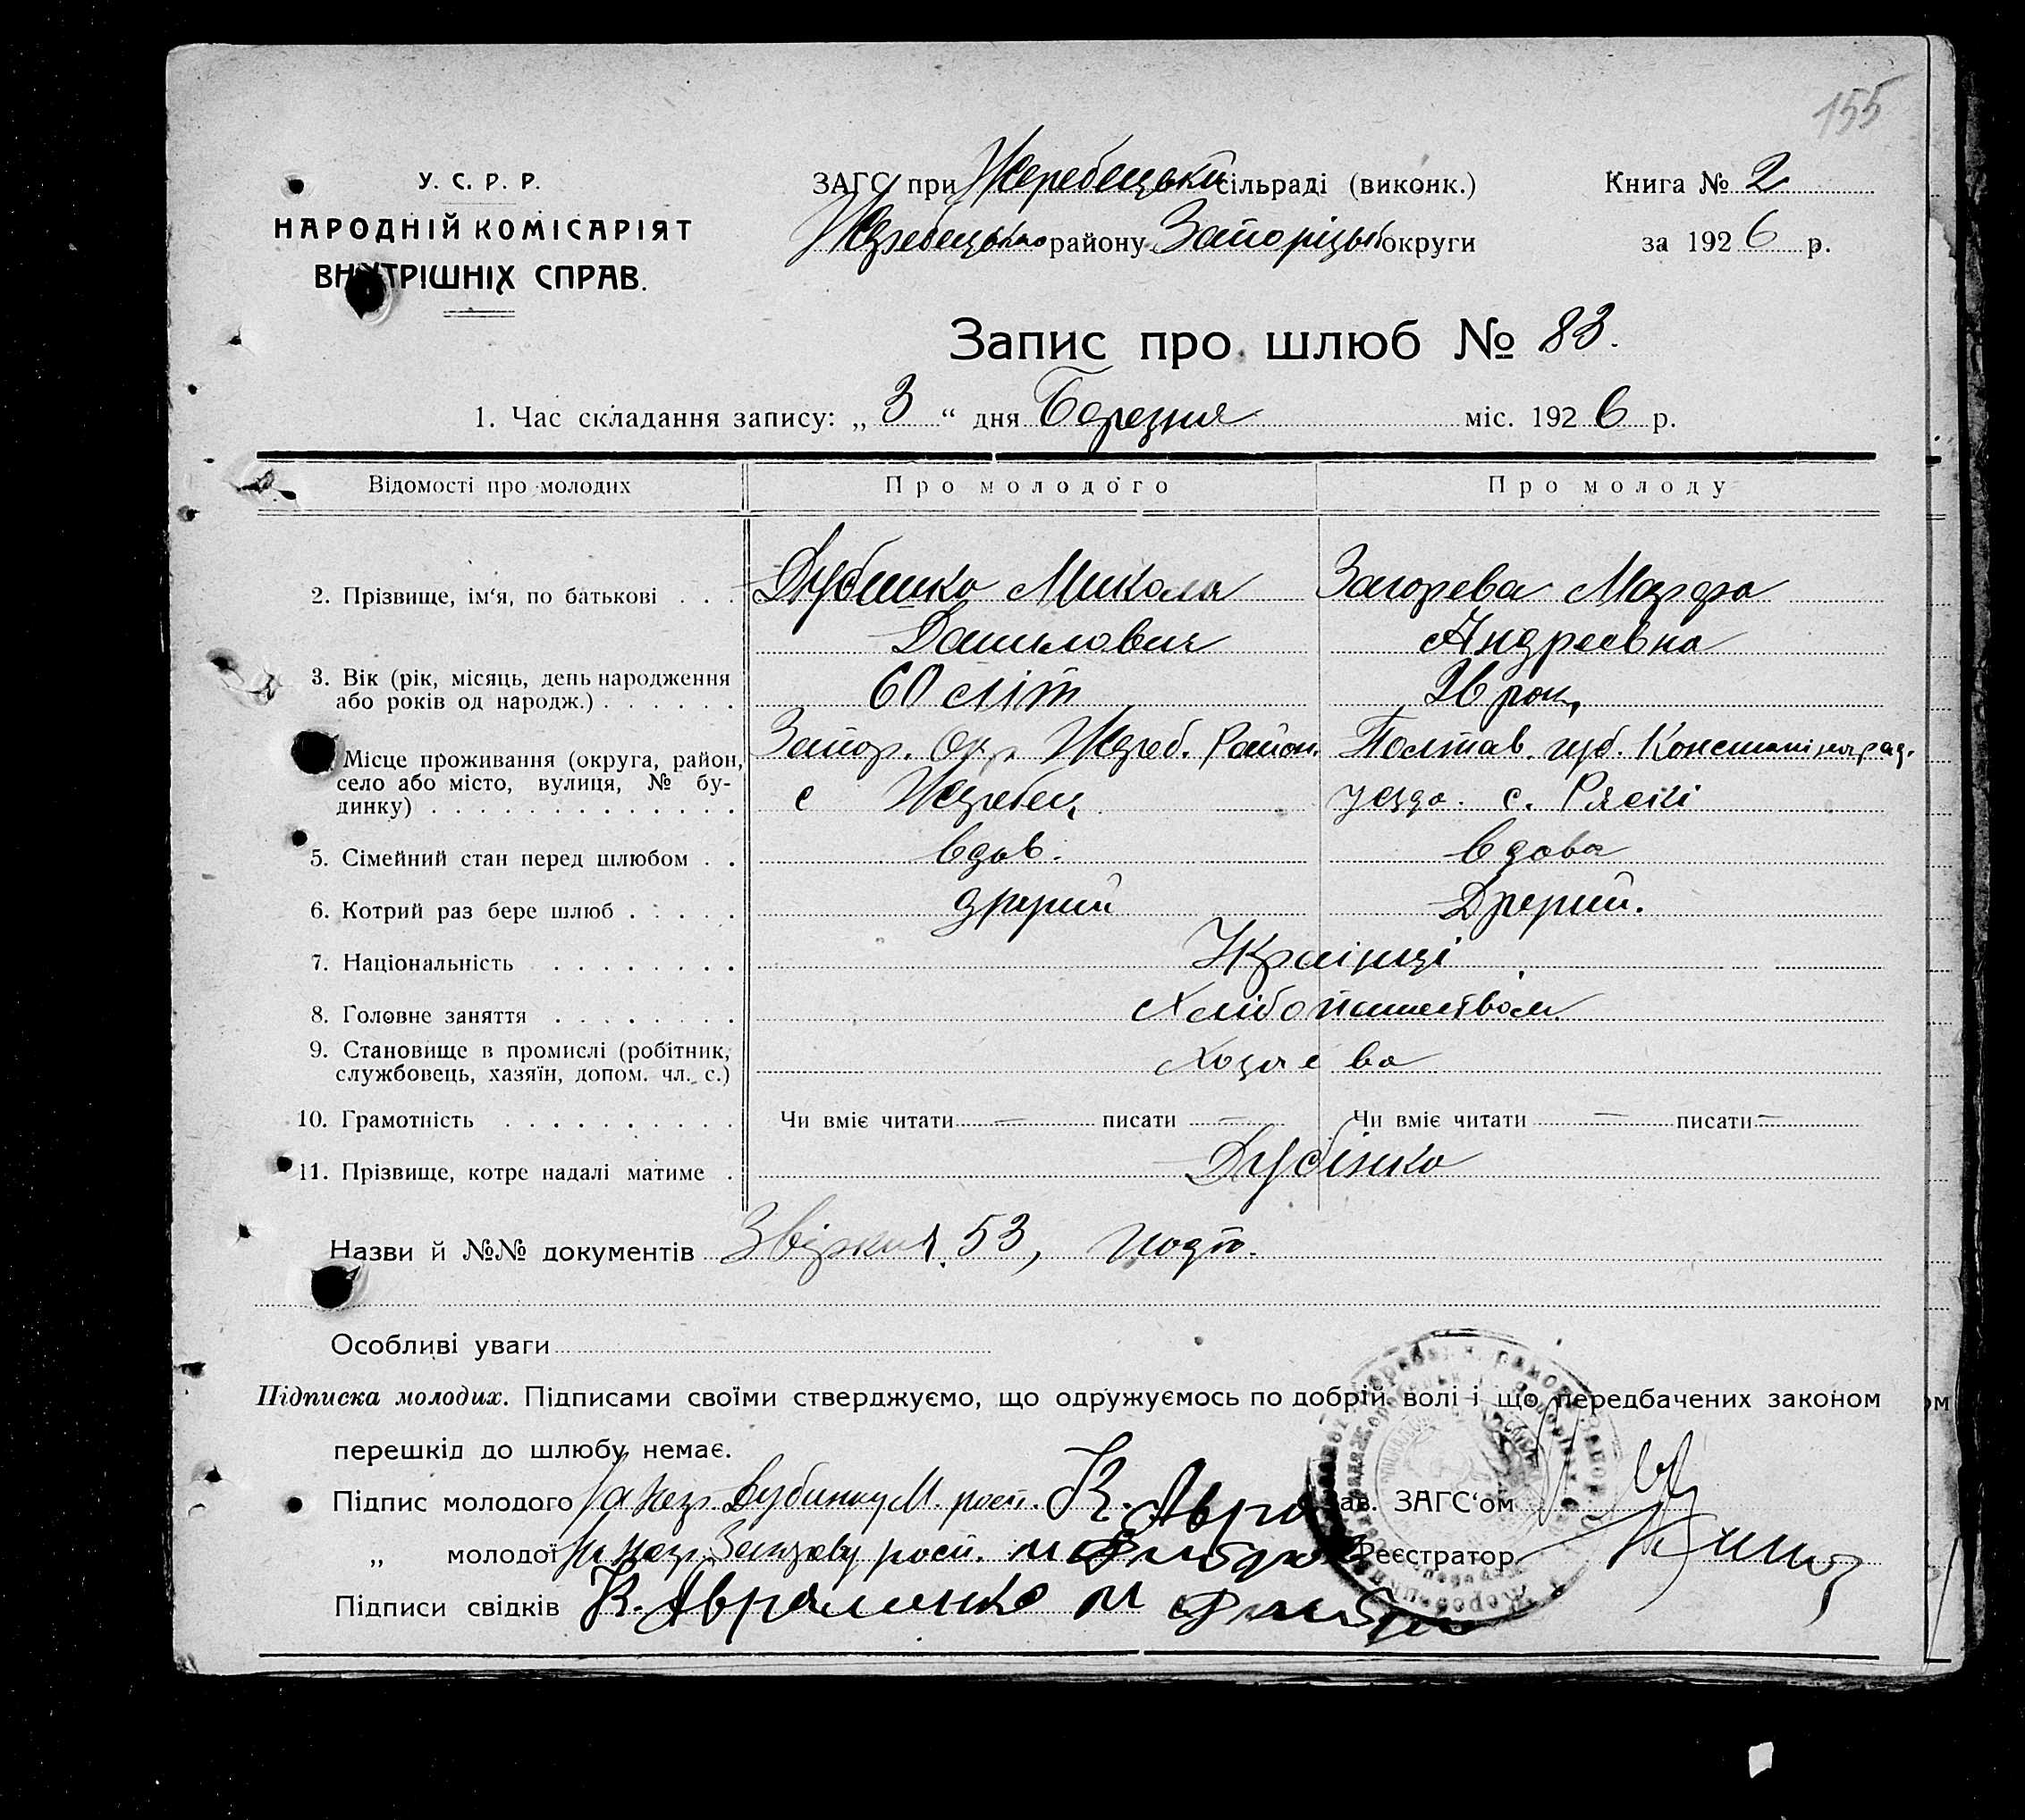 155
У. С. Р. Р.
НАРОДНІЙ КОМІСАРІЯТ
ВНУТРІШНІХ СПРАВ.
ЗАГС при Жеребецьки сільраді (виконк.)
Жеребецького району Запоріцьк округи
Книга № 2
за 1926 р.
Запис про шлюб № 83.
1. Час складання запису: „3“ дня Березня міс. 1926 р.
Відомості про молодих Про молодого Про молоду
2. Прізвище, ім‘я, по батькові . . . Дубинко Микола Загорева Марфа
Данилович Андреевна
3. Вік (рік, місяць, день народження
або років од народж.) . . . . . . 60 літ 26 роц
Місце проживання (округа, район, Запор. Окр. Жереб. Район. Полтав. губ. Константиноград.
село або місто, вулиця, № бу-
динку) . . . . . . . . . . . . . с Жеребец уезда. с. Ряскі
5. Сімейний стан перед шлюбом . . вдов. вдова
6. Котрий раз бере шлюб . . . . . другий Другий.
7. Національність . . . . . . . . Українці
8. Головне заняття . . . . . . . . Хлібопашеством
9. Становище в промислі (робітник,
службовець, хазяїн, допом. чл. с.) Хозяєва
10. Грамотність . . . . . . . . . . Чи вміє читати — писати — Чи вміє читати — писати —
11. Прізвище, котре надалі матиме . Дубінко
Назви й №№ документів 53,
Особливі уваги
Підписка молодих. Підписами своїми стверджуємо, що одружуємось по добрій волі і що передбачених законом
перешкід до шлюбу немає.
Підпис молодого за негр. Дубинку М. росп. К. Авра Зав. ЗАГС‘ом
„ молодої за негр. росп. Реєстратор
Підписи свідків К. Авраменко М